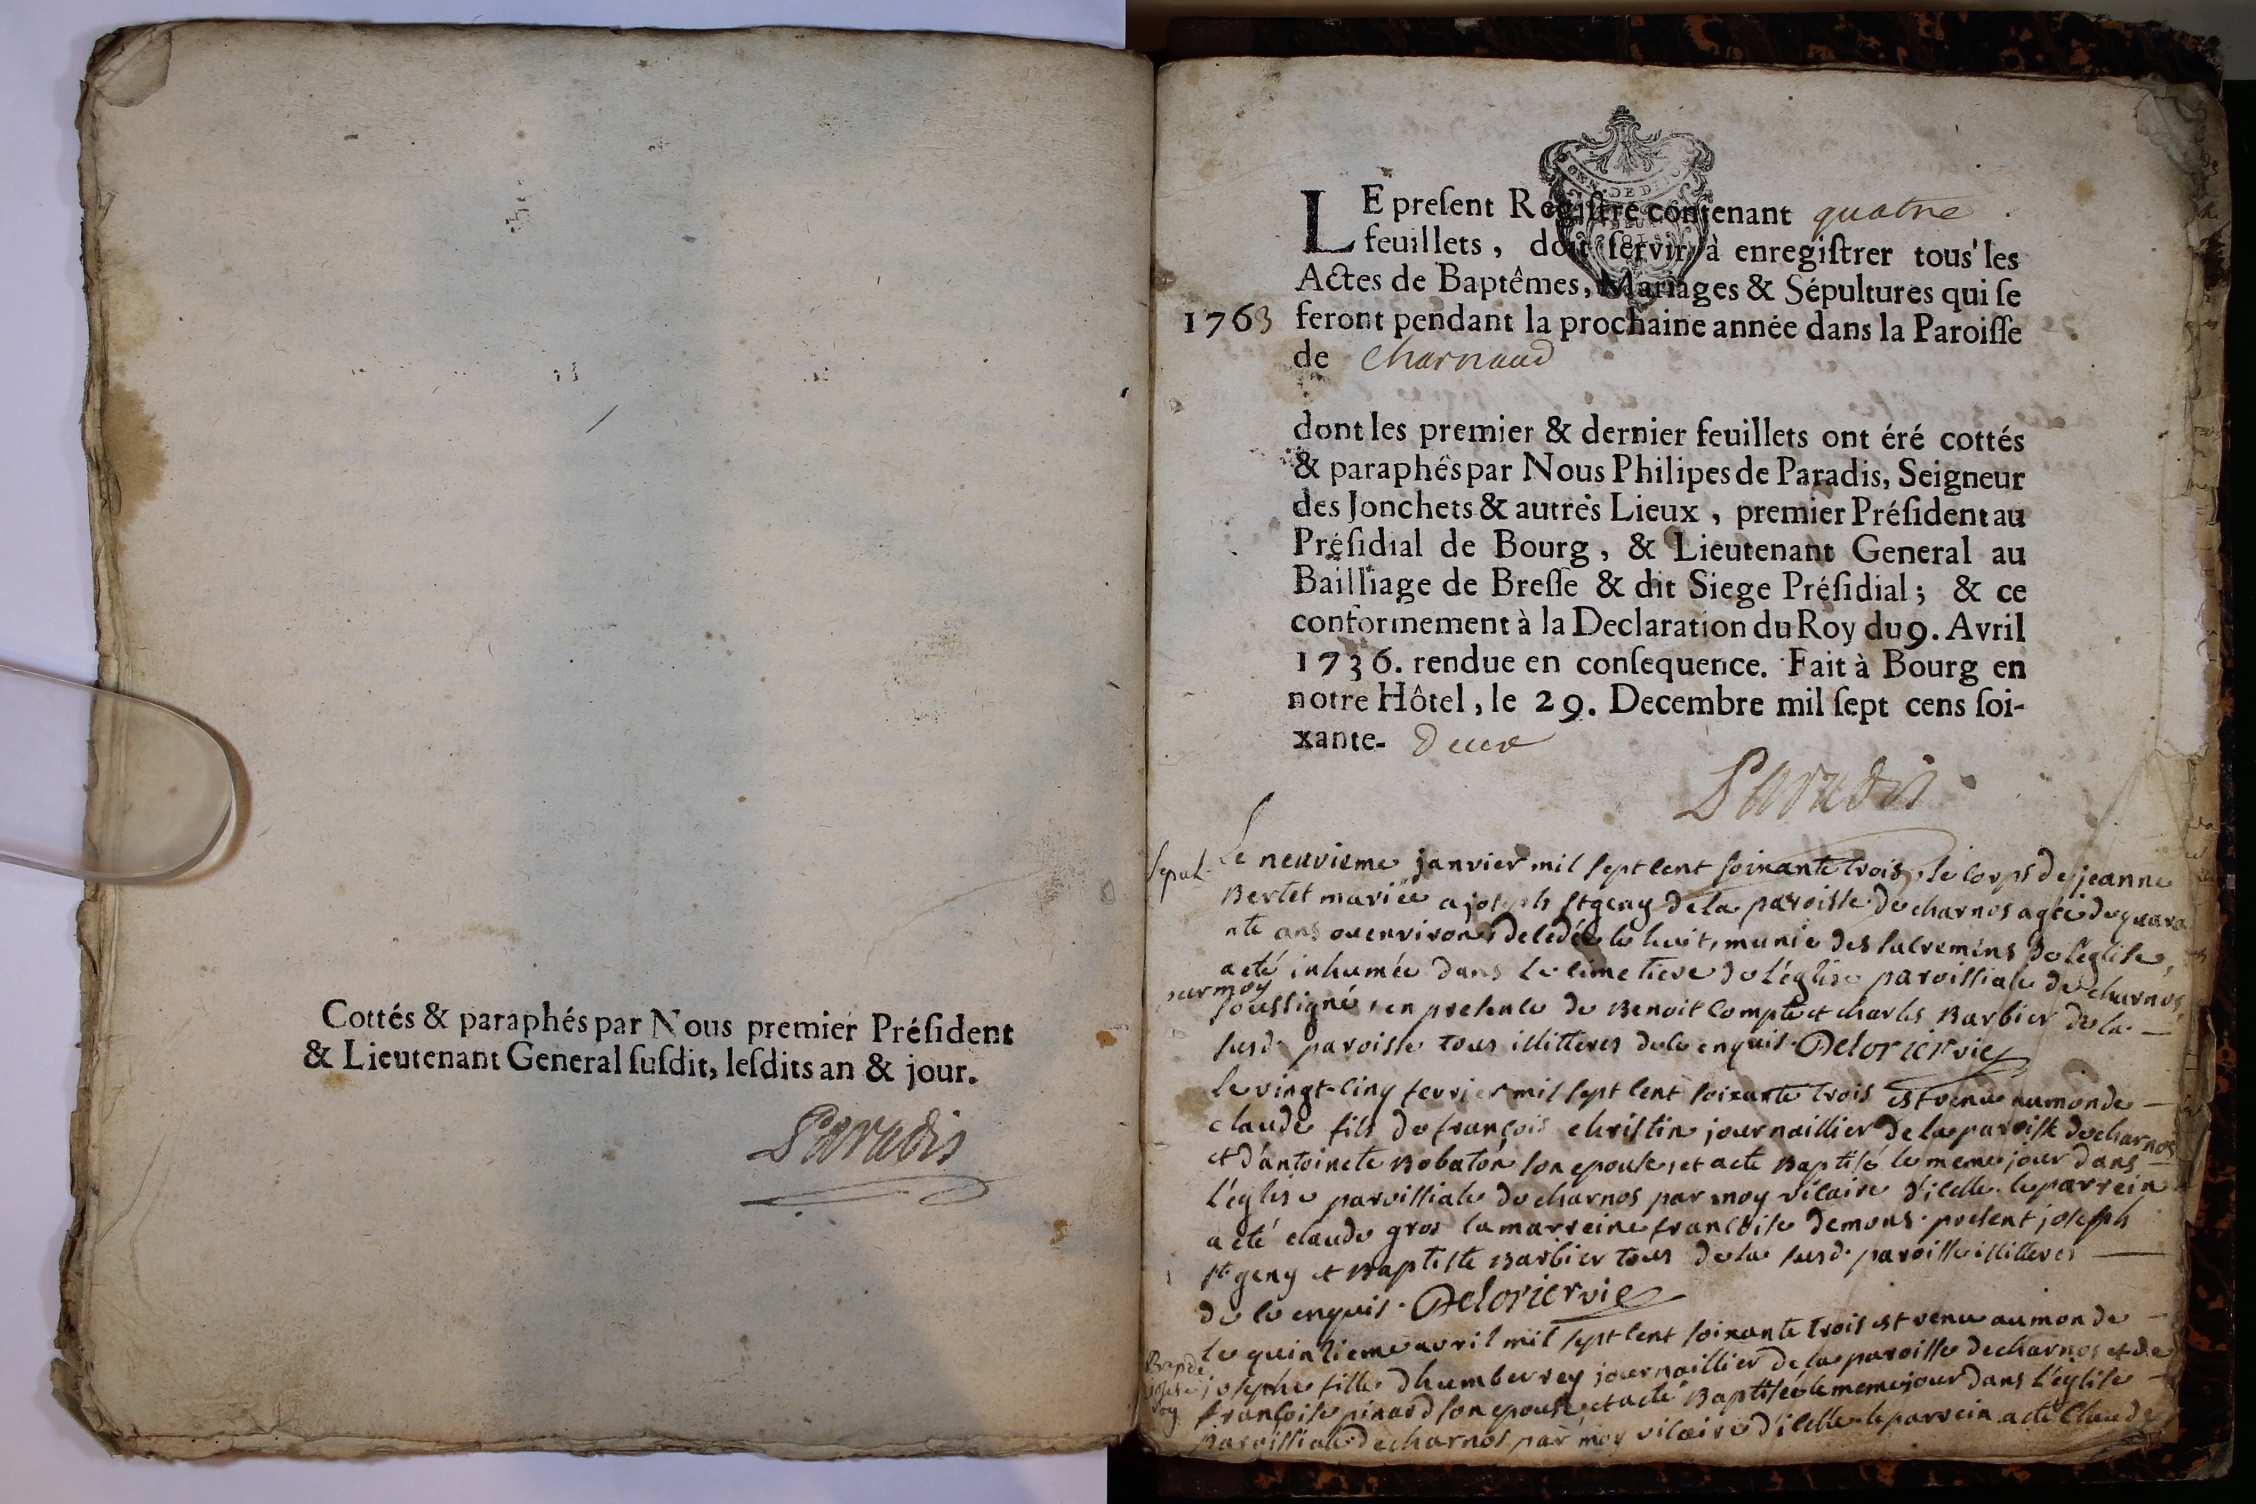 Cottés & paraphés par Nous premier Préſident
& Lieutenant General ſuſdit, leſdits an & jour.
Paradis
GEN. DE DIJON
LE preſent Regiſtre contenant quatre
feuillets, doit ſervir à enregiſtrer tous les
Actes de Baptêmes, Mariages & Sépultures qui ſe
1763 feront pendant la prochaine année dans la Paroiſſe
de Charnaud
dont les premier & dernier feuillets ont éré cottés
& paraphés par Nous Philipes de Paradis, Seigneur
des Jonchets & autres Lieux, premier Préſident au
Préſidial de Bourg, & Lieutenant General au
Bailliage de Breſſe & dit Siege Préſidial; & ce
conformement à la Declaration du Roy du 9. Avril
1736. rendue en conſequence. Fait à Bourg en
notre Hôtel, le 29. Decembre mil ſept cens ſoi-
xante- deux
Paradis
Sepul. Le neuvieme janvier mil sept cent soixante trois, le corps de jeanne
Bertet mariée a joseph st geny de la paroisse de charnos agée de quara
nte ans ou environ, decedée le huit, munie des sacremens de l'eglise,
a eté inhumée dans le cimetiere de l'église paroissiale de charnos,
par moy
soussigné, en presence de Benoit Compte et charles Barbier de la
susd. paroisse tous illitteres de ce enquis. Delorier vic
le vingt-cinq fevrier mil sept cent soixante trois est venu au monde
claude fils de françois christin journaillier de la paroisse de charnos
et d'antoinete Bobaton son epouse, et a eté Baptisé le meme jour dans
l'eglise paroissiale de charnos par moy vicaire d'icelle. le parrein
a eté claude gros la marreine francoise demons. present joseph
st. geny et Baptiste Barbier tous de la susd. paroisse illitteres
de ce enquis. Delorier vic
le quinzieme avril mil sept cent soixante trois est venu au monde
josephe fille d'humber rey journaillier de la paroisse de charnos et de
françoise pinard son epouse, et a eté Baptisée le meme jour dans l'église
paroissiale de charnos par moy vicaire d'icelle. le parrein a eté Claude